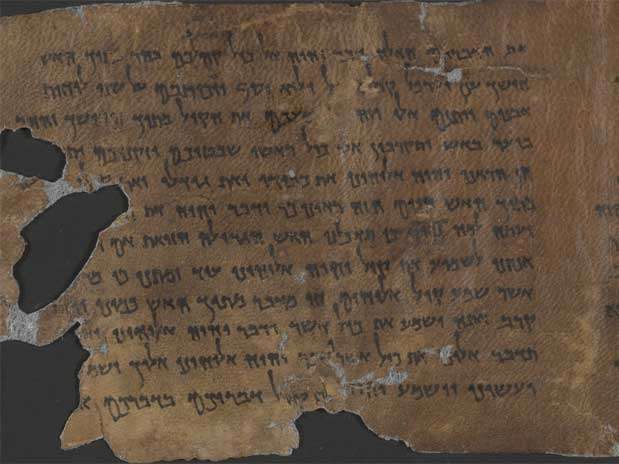 את הדברים האלה דבר יהוה אל כול קהלכם בהר מתוך האש
חושך ענן וערפל קול גדול ולוא יסף ויכתובם על שני לוחות
אבנים ויתנם אלי ויהי כשמעכם את הקול מתוך החושך וההר
בוער באש ותקרבון אלי כול ראשי שבטיכם וזקניכם
הן הראנו יהוה אלוהינו את כבודו ואת גודלו
מתוך האש היום הזה ראינו כי ידבר יהוה את
ועתה למה נמות כי תאכלנו האש הגדולה הזואת אם
אנחנו לשמע את קול יהוה אלוהינו עוד ומתנו כי
אשר שמע קול אלוהים חי מדבר מתוך האש כמונו
קרב אתה ושמע את כול אשר ידבר יהוה אלוהינו
תדבר אלינו את כול אשר ידבר יהוה אלוהינו אליך
ועשינו וישמע יהוה את קול דבריכם בדברכם